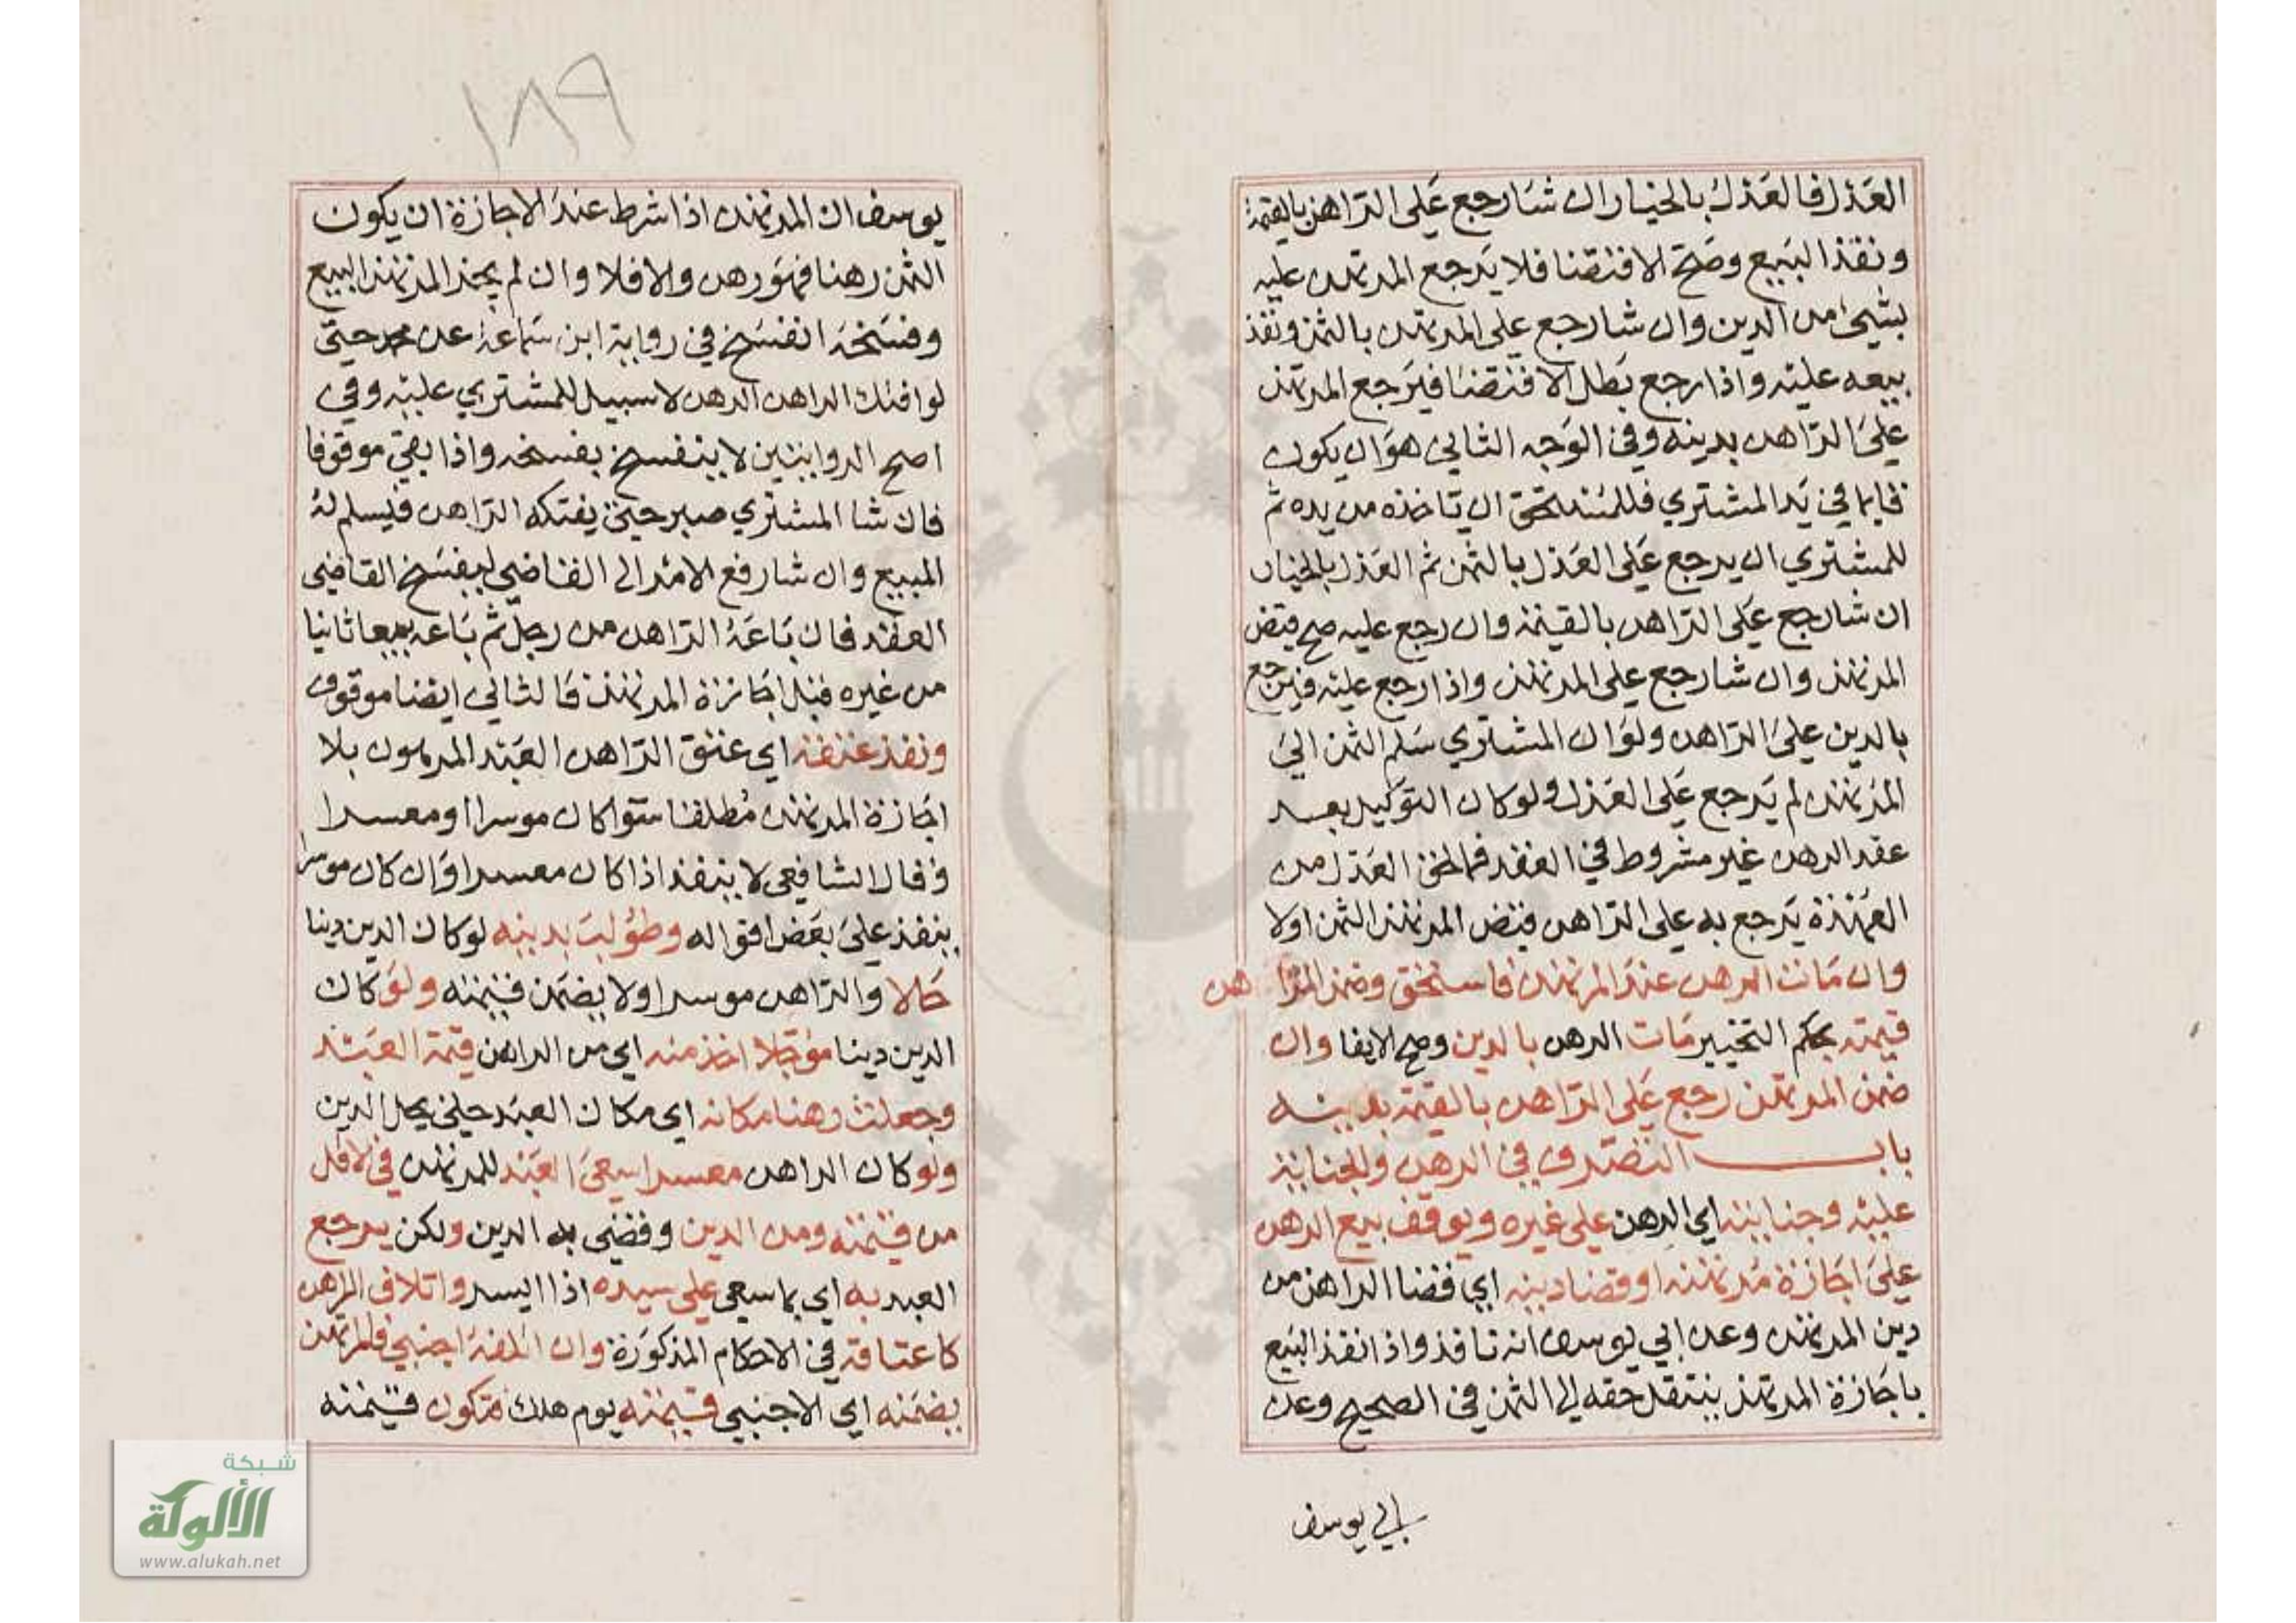 العدل فالعدل بالخيار ان شا رجع على الراهن بالقيمة
ونفذ البيع وصح الاقتضا فلا يرجع المرتهن عليه
بشيء من الدين وان شا رجع على المرتهن بالثمن ونفذ
بيعه عليه واذا رجع بطل الاقتضا فيرجع المرتهن
على الراهن بدينه وفي الوجه الثاني هو ان يكون
قايما في يد المشتري فللمستحق ان ياخذه من يده ثم
للمشتري ان يرجع على العدل بالثمن ثم العدل بالخيار
ان شا رجع على الراهن بالقيمة وان رجع عليه صح قبض
المرتهن وان شا رجع على المرتهن واذا رجع عليه فيرجع
بالدين على الراهن ولو ان المشتري سلم الثمن الى
المرتهن لم يرجع على العدل ولو كان التوكيل بعد
عقد الرهن غير مشروط في العقد فما لحق العدل من
العهدة يرجع به على الراهن قبض المرتهن الثمن اولا
وان مات الرهن عند المرتهن فاستحق وضمن الراهن
قيمته بحكم التخيير مات الرهن بالدين وصح الايفا وان
ضمن المرتهن رجع على الراهن بالقيمة بدينه
باب التصرف في الرهن والجناية
عليه وجنايته اي الرهن على غيره ويوقف بيع الرهن
على اجازة مرتهنه او قضا دينه اي قضا الراهن من
دين المرتهن وعن ابي يوسف انه نافذ واذا نفذ البيع
باجازة المرتهن ينتقل حقه الى الثمن في الصحيح وعن
ابي يوسف
١٨٩
يوسف ان المرتهن اذا شرط عند الاجازة ان يكون
الثمن رهنا فهو رهن والا فلا وان لم يجز المرتهن البيع
وفسخه انفسخ في رواية ابن سماعة عن محمد حتى
لو افتك الراهن الرهن لا سبيل للمشتري عليه وفي
اصح الروايتين لا ينفسخ بفسخه واذا بقي موقوفا
فان شا المشتري صبر حتى يفتكه الراهن فيسلم له
المبيع وان شا رفع الامر الى القاضي ليفسخ القاضي
العقد فان باعه الراهن من رجل ثم باعه بيعا ثانيا
من غيره قبل اجازة المرتهن فالثاني ايضا موقوف
ونفذ عتقه اي عتق الراهن العبد المرهون بلا
اجازة المرتهن مطلقا سوا كان موسرا او معسرا
وقال الشافعي لا ينفذ اذا كان معسرا وان كان موسرا
ينفذ على بعض اقواله وطولب بدينه لو كان الدين دينا
حالا والراهن موسرا ولا يضمن قيمته ولو كان
الدين دينا مؤجلا اخذ منه اي من الراهن قيمة العبد
وجعلت رهنا مكانه اي مكان العبد حتى يحل الدين
ولو كان الراهن معسرا سعى العبد للمرتهن في الاقل
من قيمته ومن الدين وقضى به الدين ولكن يرجع
العبد به اي بما سعى على سيده اذا ايسر واتلاف الراهن
كاعتاقه في الاحكام المذكورة وان اتلفه اجنبي فالمرتهن
يضمنه اي الاجنبي قيمته يوم هلك فتكون قيمته
شبكة
الألوكة
www.alukah.net